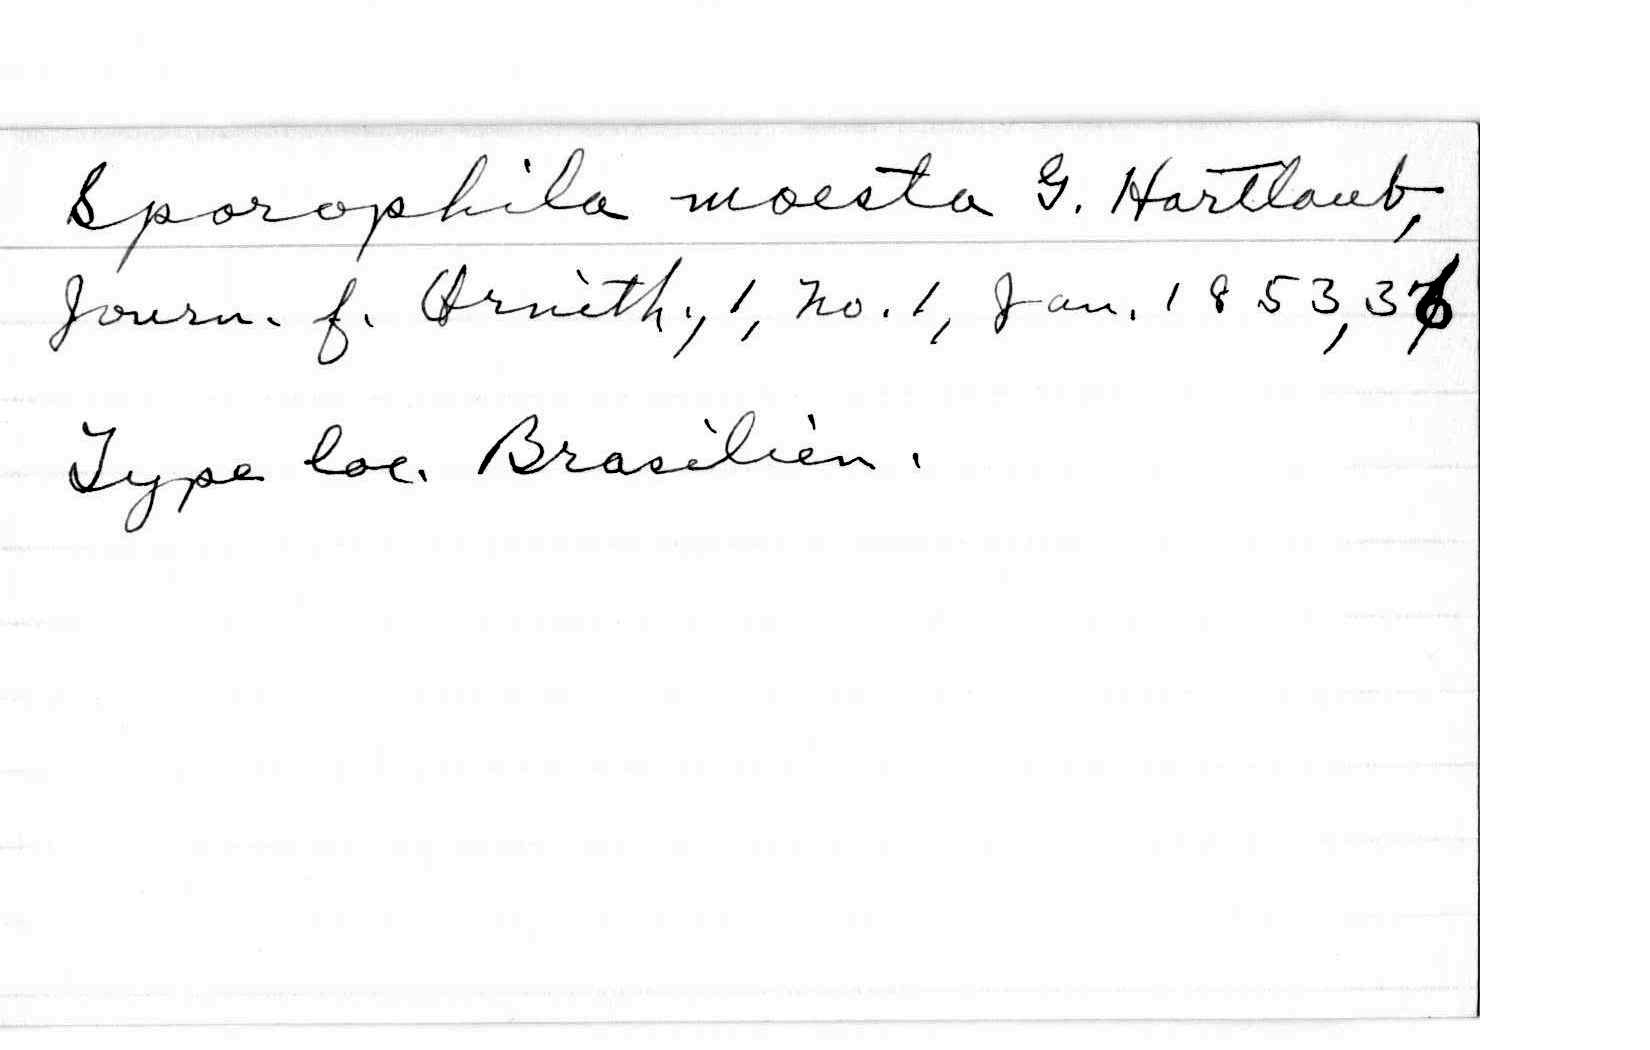 Sporophila moesta G. Hartlaub,
Journ. f. Ornith., 1, no. 1, Jan. 1853, 36
Type loc. Brasilien.